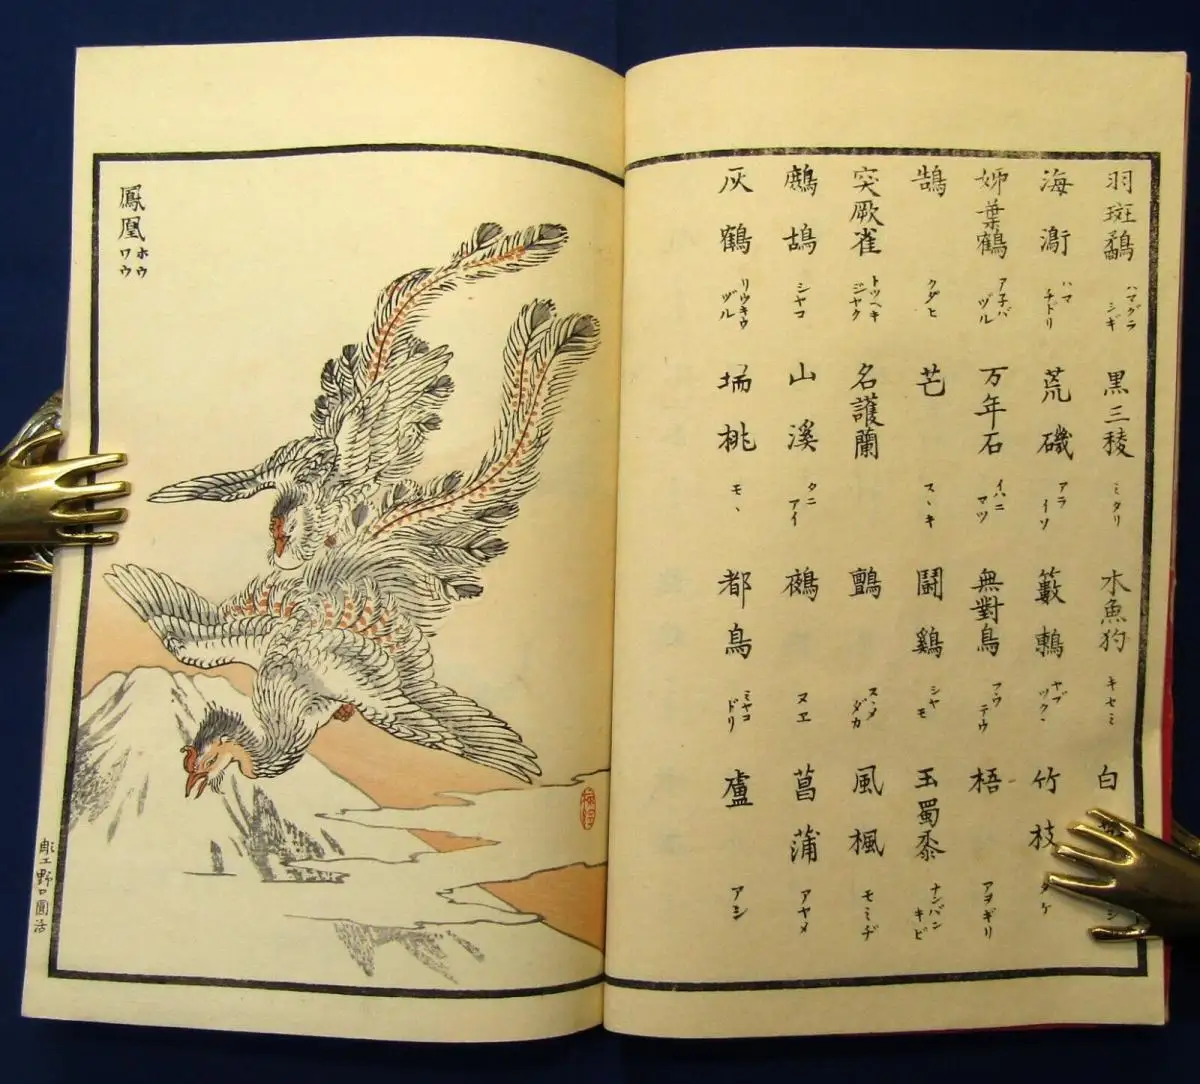 羽斑鷸 ハマグラシギ 黒三稜 ミクリ 木魚狗 キセミ 白
海鵆 ハマチドリ 荒磯 アライソ 籔鶫 ヤブツクヾ 竹枝 タケ
姉葉鶴 ア子バヅル 万年石 イハニマツ 無對鳥 アウテウ 梧 アヲギリ
鵠 クグヒ 芒 スヽキ 鬪鷄 シヤモ 玉蜀黍 ナンバンキビ
突厥雀 トツヘキジヤク 名護蘭 鸇 スヾメダカ 風楓 モミヂ
鷓鴣 シヤコ 山溪 タニアイ 鵺 ヌエ 菖蒲 アヤメ
灰鶴 リウキウヅル 𭏟桃 モヽ 都鳥 ミヤコドリ 蘆 アシ
鳳凰 ホウワウ
彫工 野口圓活